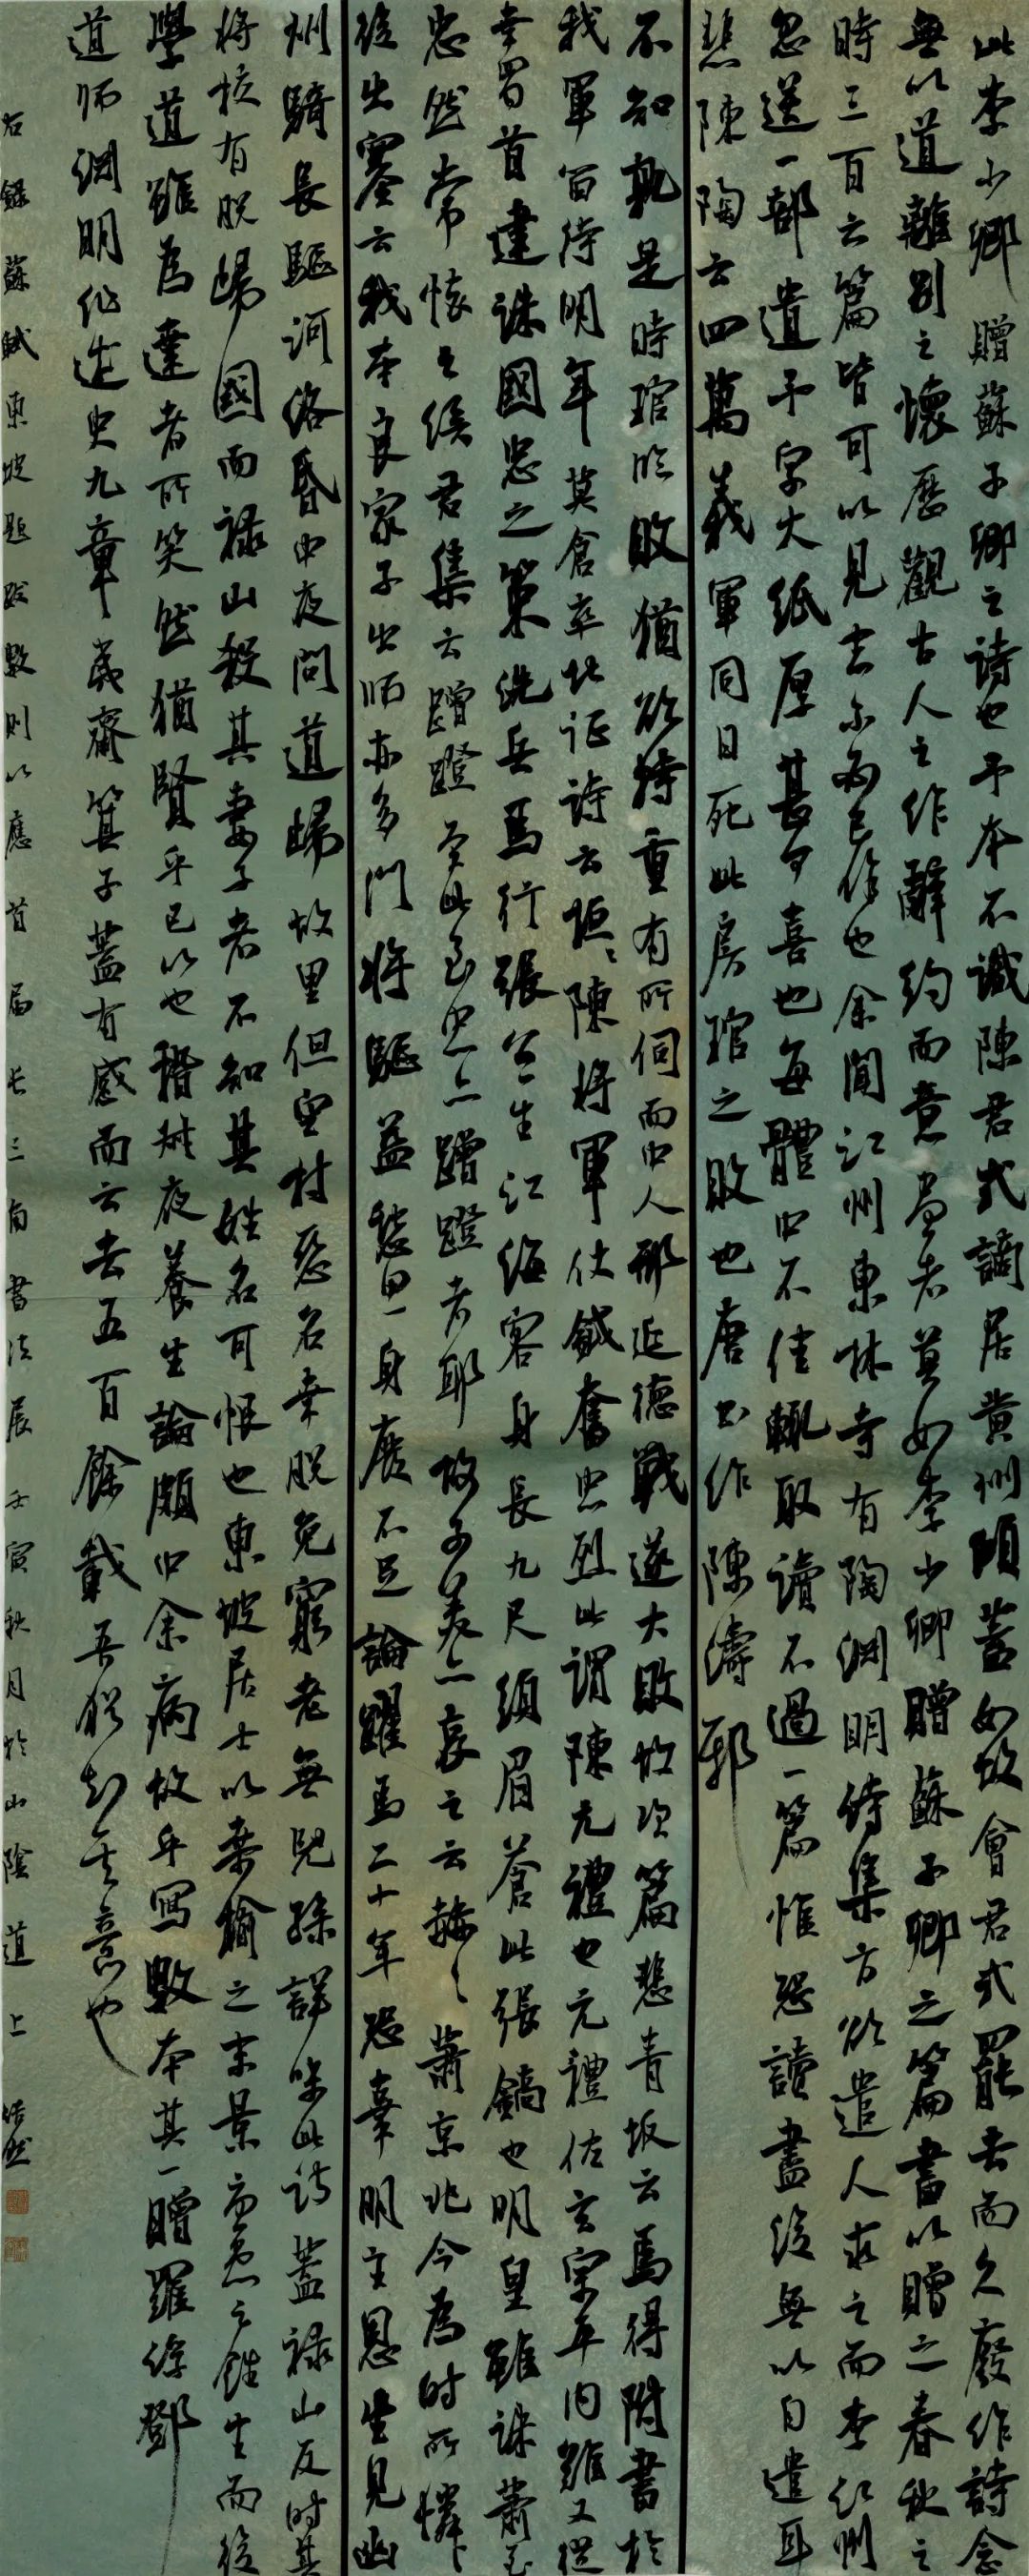 此李少卿贈蘇子卿之詩也予本不識陳君式謫居黃州傾蓋如故會君式罷去而久廢作詩念
無以道離別之懷歷觀古人之作辭約而意盡者莫如李少卿贈蘇子卿之篇書以贈之春秋之
時三百六篇皆可以見志不必己作也余聞江州東林寺有陶淵明詩集方欲遣人求之而李江州
忽送一部遺予字大紙厚甚可喜也每體中不佳輒取讀不過一篇惟恐讀盡後無以自遣耳
悲陳陶云四萬義軍同日死此房琯之敗也唐書作陳濤邪
不知孰是時琯臨敗猶欲持重有所伺而中人邢延德戰遂大敗故次篇悲青坂云焉得附書於
我軍留待明年莫倉卒北征詩云桓〻陳將軍仗鉞奮忠烈此謂陳元禮也元禮佐玄宗平內難又從
幸蜀首建誅國忠之策洗兵馬行張公一生江海客身長九尺須眉蒼此張鎬也明皇雖誅蕭至
忠然常懷之侯君集云蹭蹬至此至忠亦蹭蹬者耶故子美亦哀之云赫〻蕭京兆今為時所憐
後出塞云我本良家子出師亦多門將驕益愁思身廢不足論躍馬二十年恐辜明主恩坐見幽
州騎長驅河洛昏中夜問道歸故里但空村惡名幸脫免窮老無兒孫詳味此詩蓋祿山反時其
將校有脫歸國而祿山殺其妻子者不知其姓名可恨也東坡居士以桑榆之末景憂患之餘生而後
學道雖為達者所笑然猶賢乎已以也嵇叔夜養生論頗中余病故手寫數本其一贈羅浮鄧
道師淵明作述史九章夷齊箕子蓋有感而云去五百餘載吾猶知其意也
右錄蘇軾東坡題跋數則以應首屆長三角書法展壬寅秋月於山陰道上